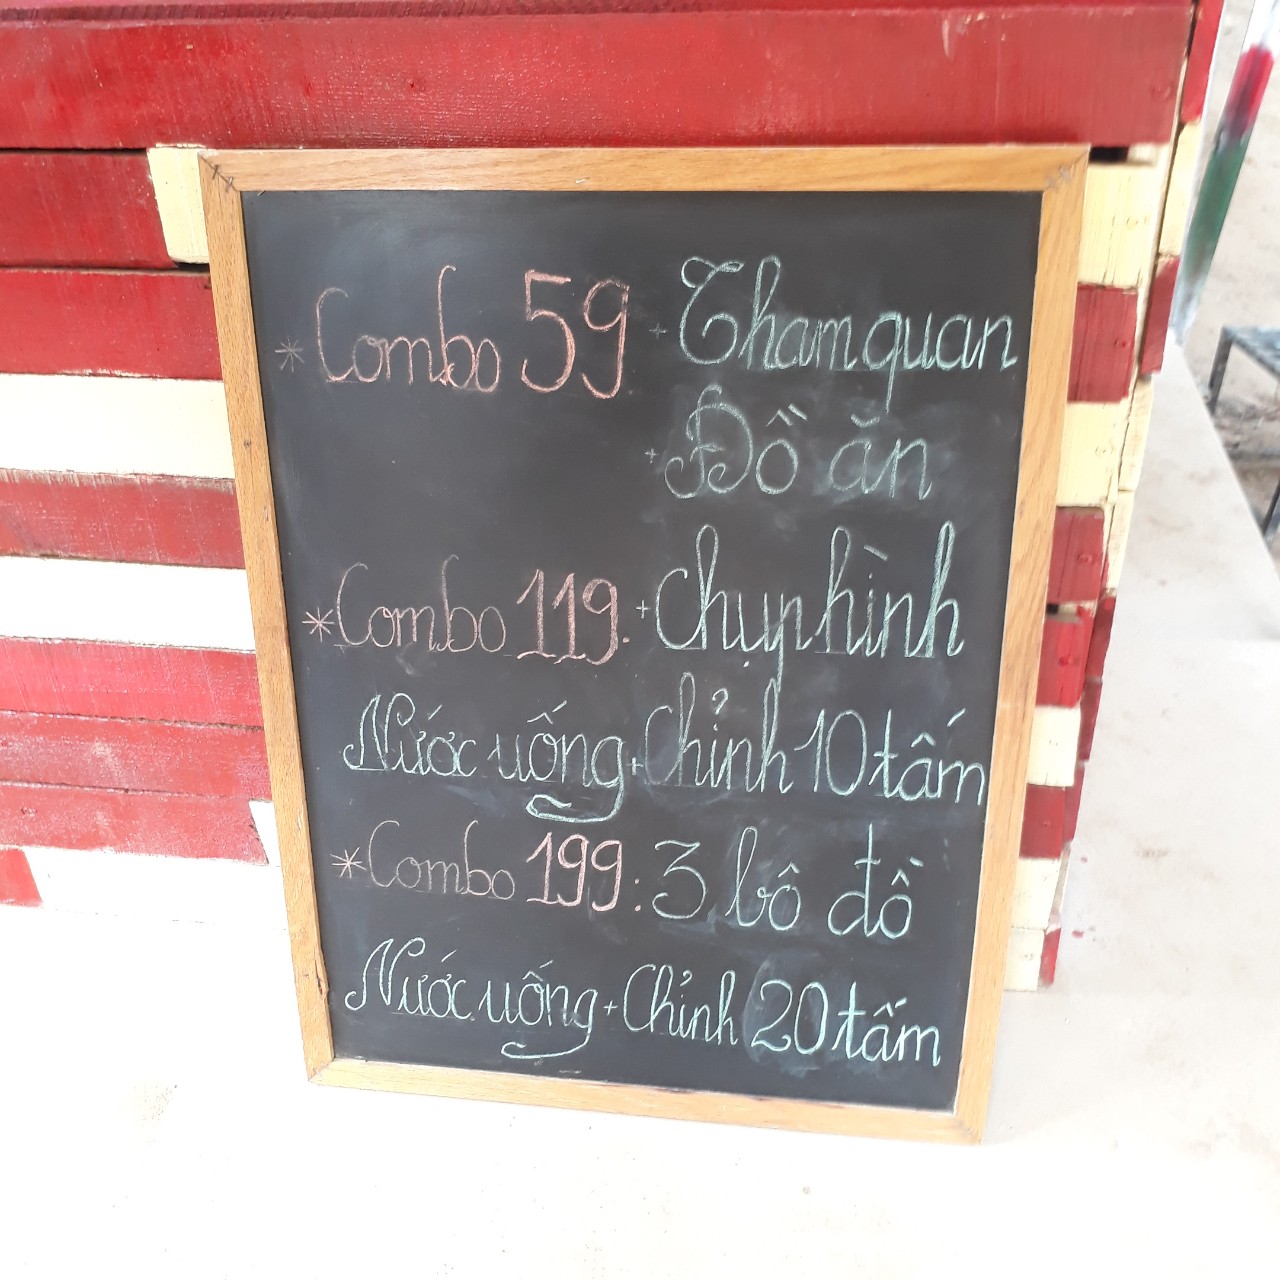 * Combo 59 + Tham quan
+ Đồ ăn
* Combo 119. + Chụp hình
Nước uống + Chỉnh 10 tấm
* Combo 199: 3 bô đồ
Nước uống + Chỉnh 20 tấm